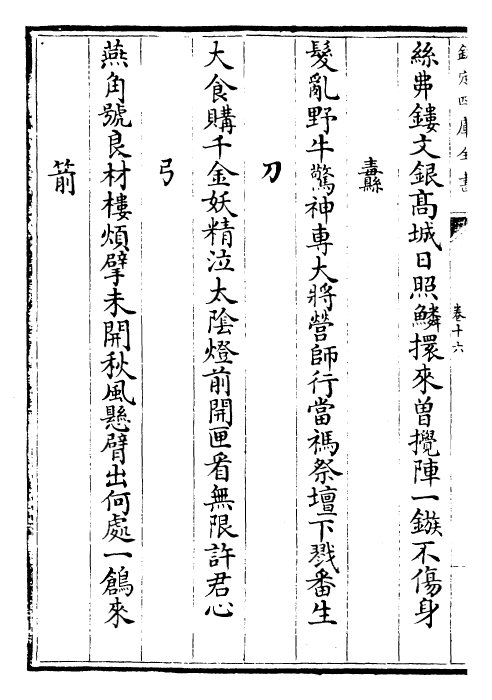 欽定四庫全書
卷十六
絲弗鏤文銀髙城日照鱗擐來曽攪陣一鏃不傷身
纛
髮亂野牛驚神專大將營師行當禡祭壇下戮番生
刀
大食購千金妖精泣太陰燈前開匣看無限許君心
弓
燕角號良材樓煩擘未開秋風懸臂出何處一鶬來
箭